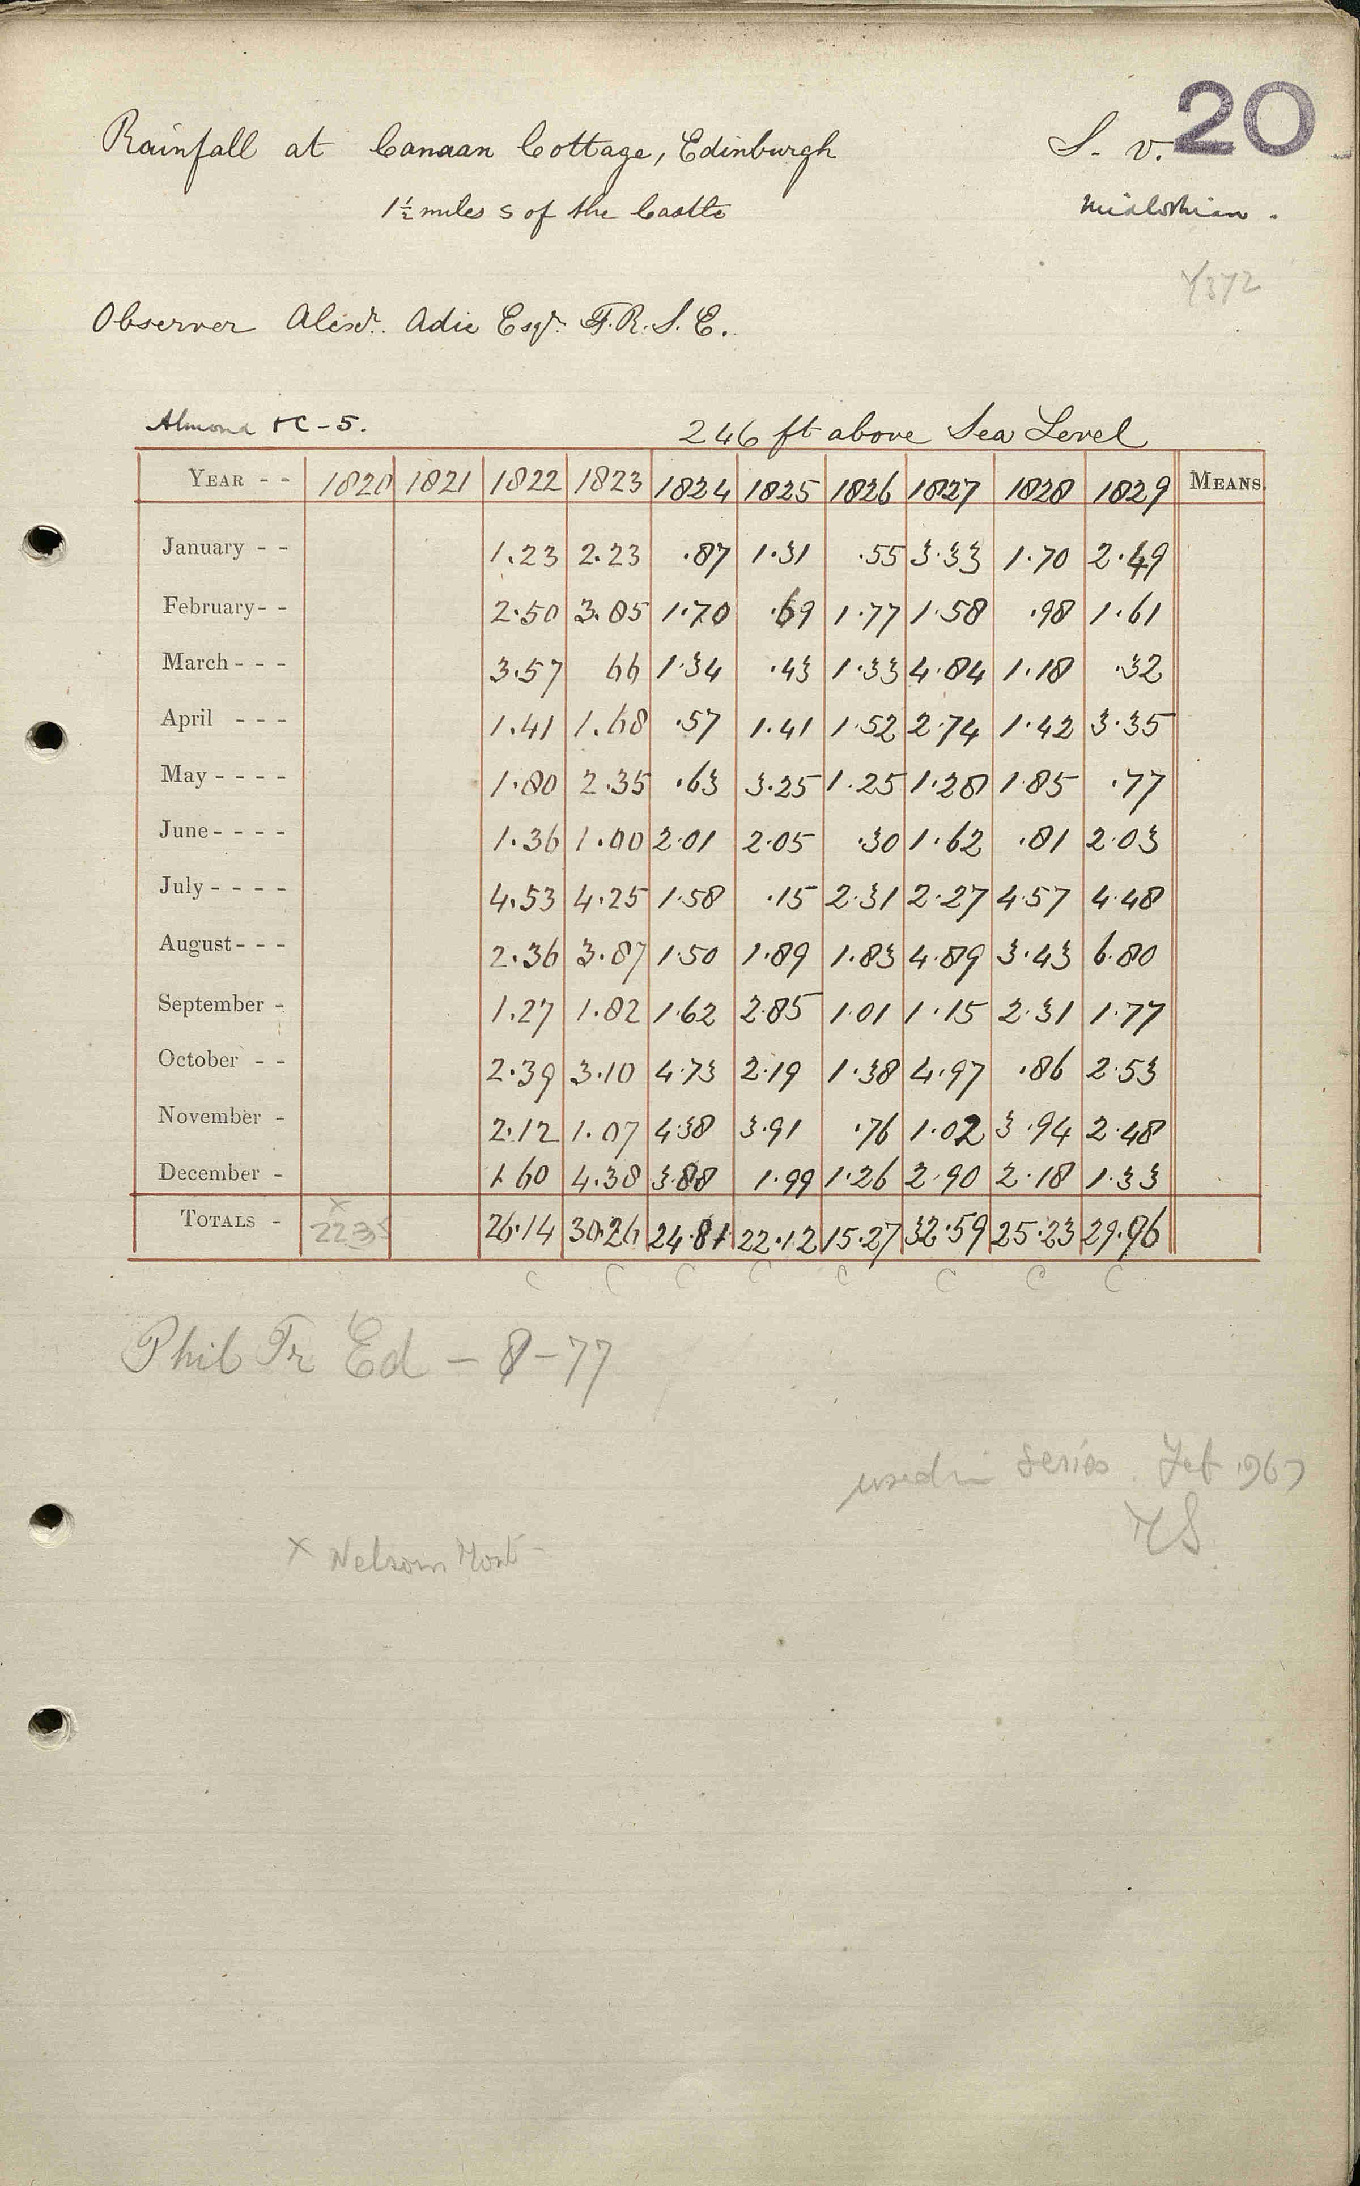 20
Rainfall at Canaan Cottage, Edinburgh S. v.
1½ miles S of the Castle Midlothian.
Y372
Observer Alexr. Adie Esqr. F.R.S.E.
Almond &C - 5. 246 ft above Sea Level
YEAR - - 1820 1821 1822 1823 1824 1825 1826 1827 1828 1829 MEANS.
January - - 1.23 2.23 .87 1.31 .55 3.33 1.70 2.49
February - - 2.50 3.85 1.70 .69 1.77 1.58 .98 1.61
March - - - 3.57 66 1.34 .43 1.33 4.84 1.18 .32
April - - - 1.41 1.68 .57 1.41 1.52 2.74 1.42 3.35
May - - - - 1.80 2.35 .63 3.25 1.25 1.28 1.85 .77
June - - - - 1.36 1.00 2.01 2.05 .30 1.62 .81 2.03
July - - - - 4.53 4.25 1.58 .15 2.31 2.27 4.57 4.48
August - - - 2.36 3.87 1.50 1.89 1.83 4.89 3.43 6.80
September - 1.27 1.82 1.62 2.85 1.01 1.15 2.31 1.77
October - - 2.39 3.10 4.73 2.19 1.38 4.97 .86 2.53
November - 2.12 1.07 4.38 3.91 .76 1.02 3.94 2.48
December - 1.60 4.38 3.88 1.99 1.26 2.90 2.18 1.33
x
TOTALS - 2235 26.14 30.26 24.81 22.12 15.27 32.59 25.23 29.96
C C C C C C C C
Phil Tr Ed - 8 - 77
used in series. Feb 1967
MS
x Nelson Mont